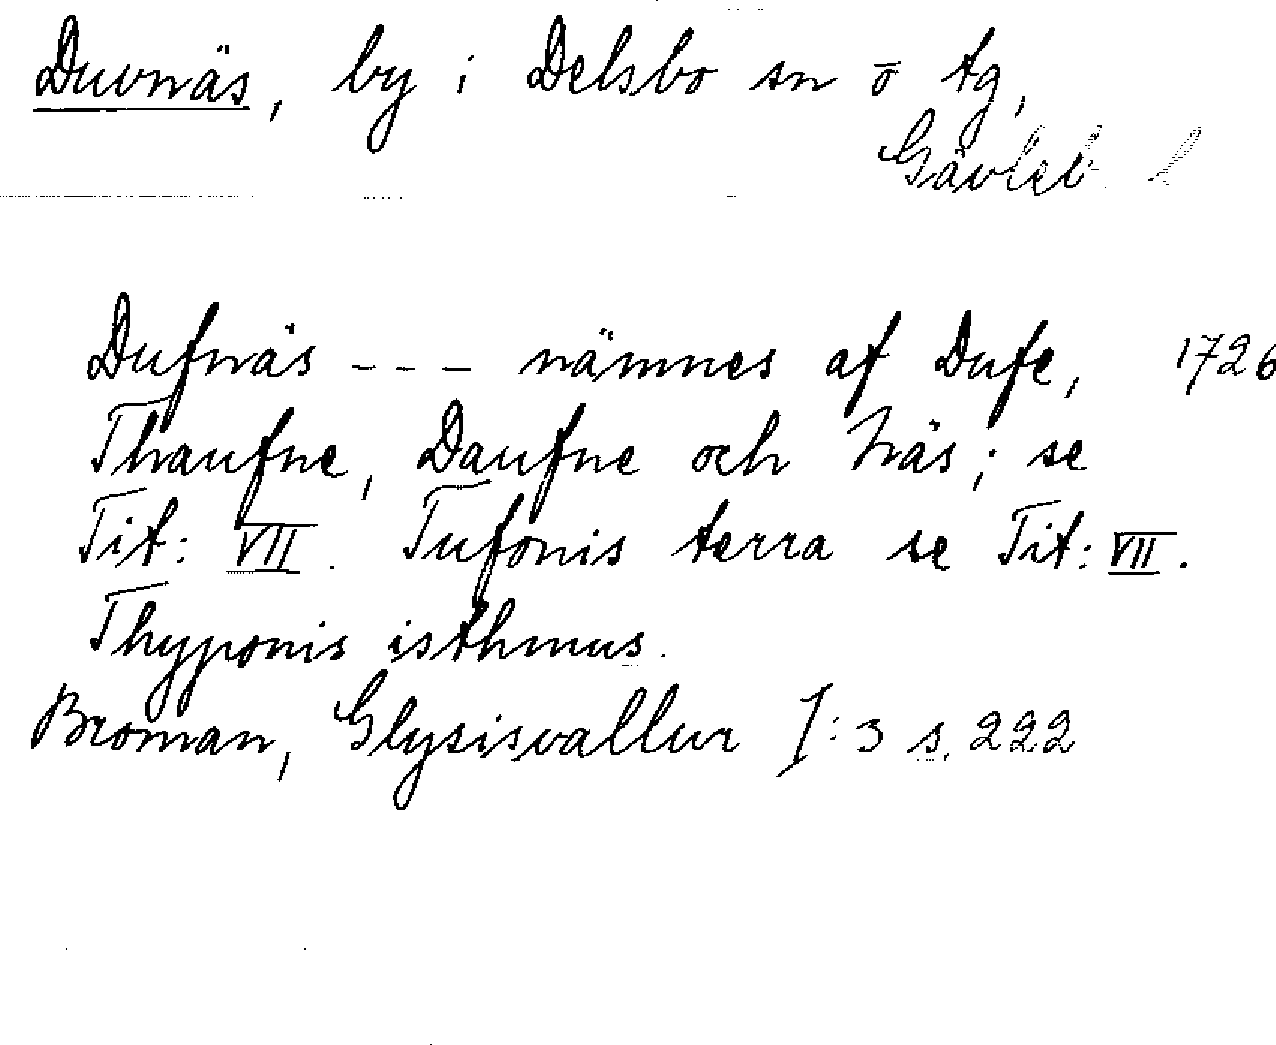 Duvnäs, by i Delsbo sn o tg,
Gävleb. l
Dufnäs --- nämnes af Dufe, 1726
Thaufne, Daufne och Näs; se
Tit: VII. Tufonis terra se Tit: VII.
Thyponis isthmus.
Broman, Glysisvallur I:3 s. 222